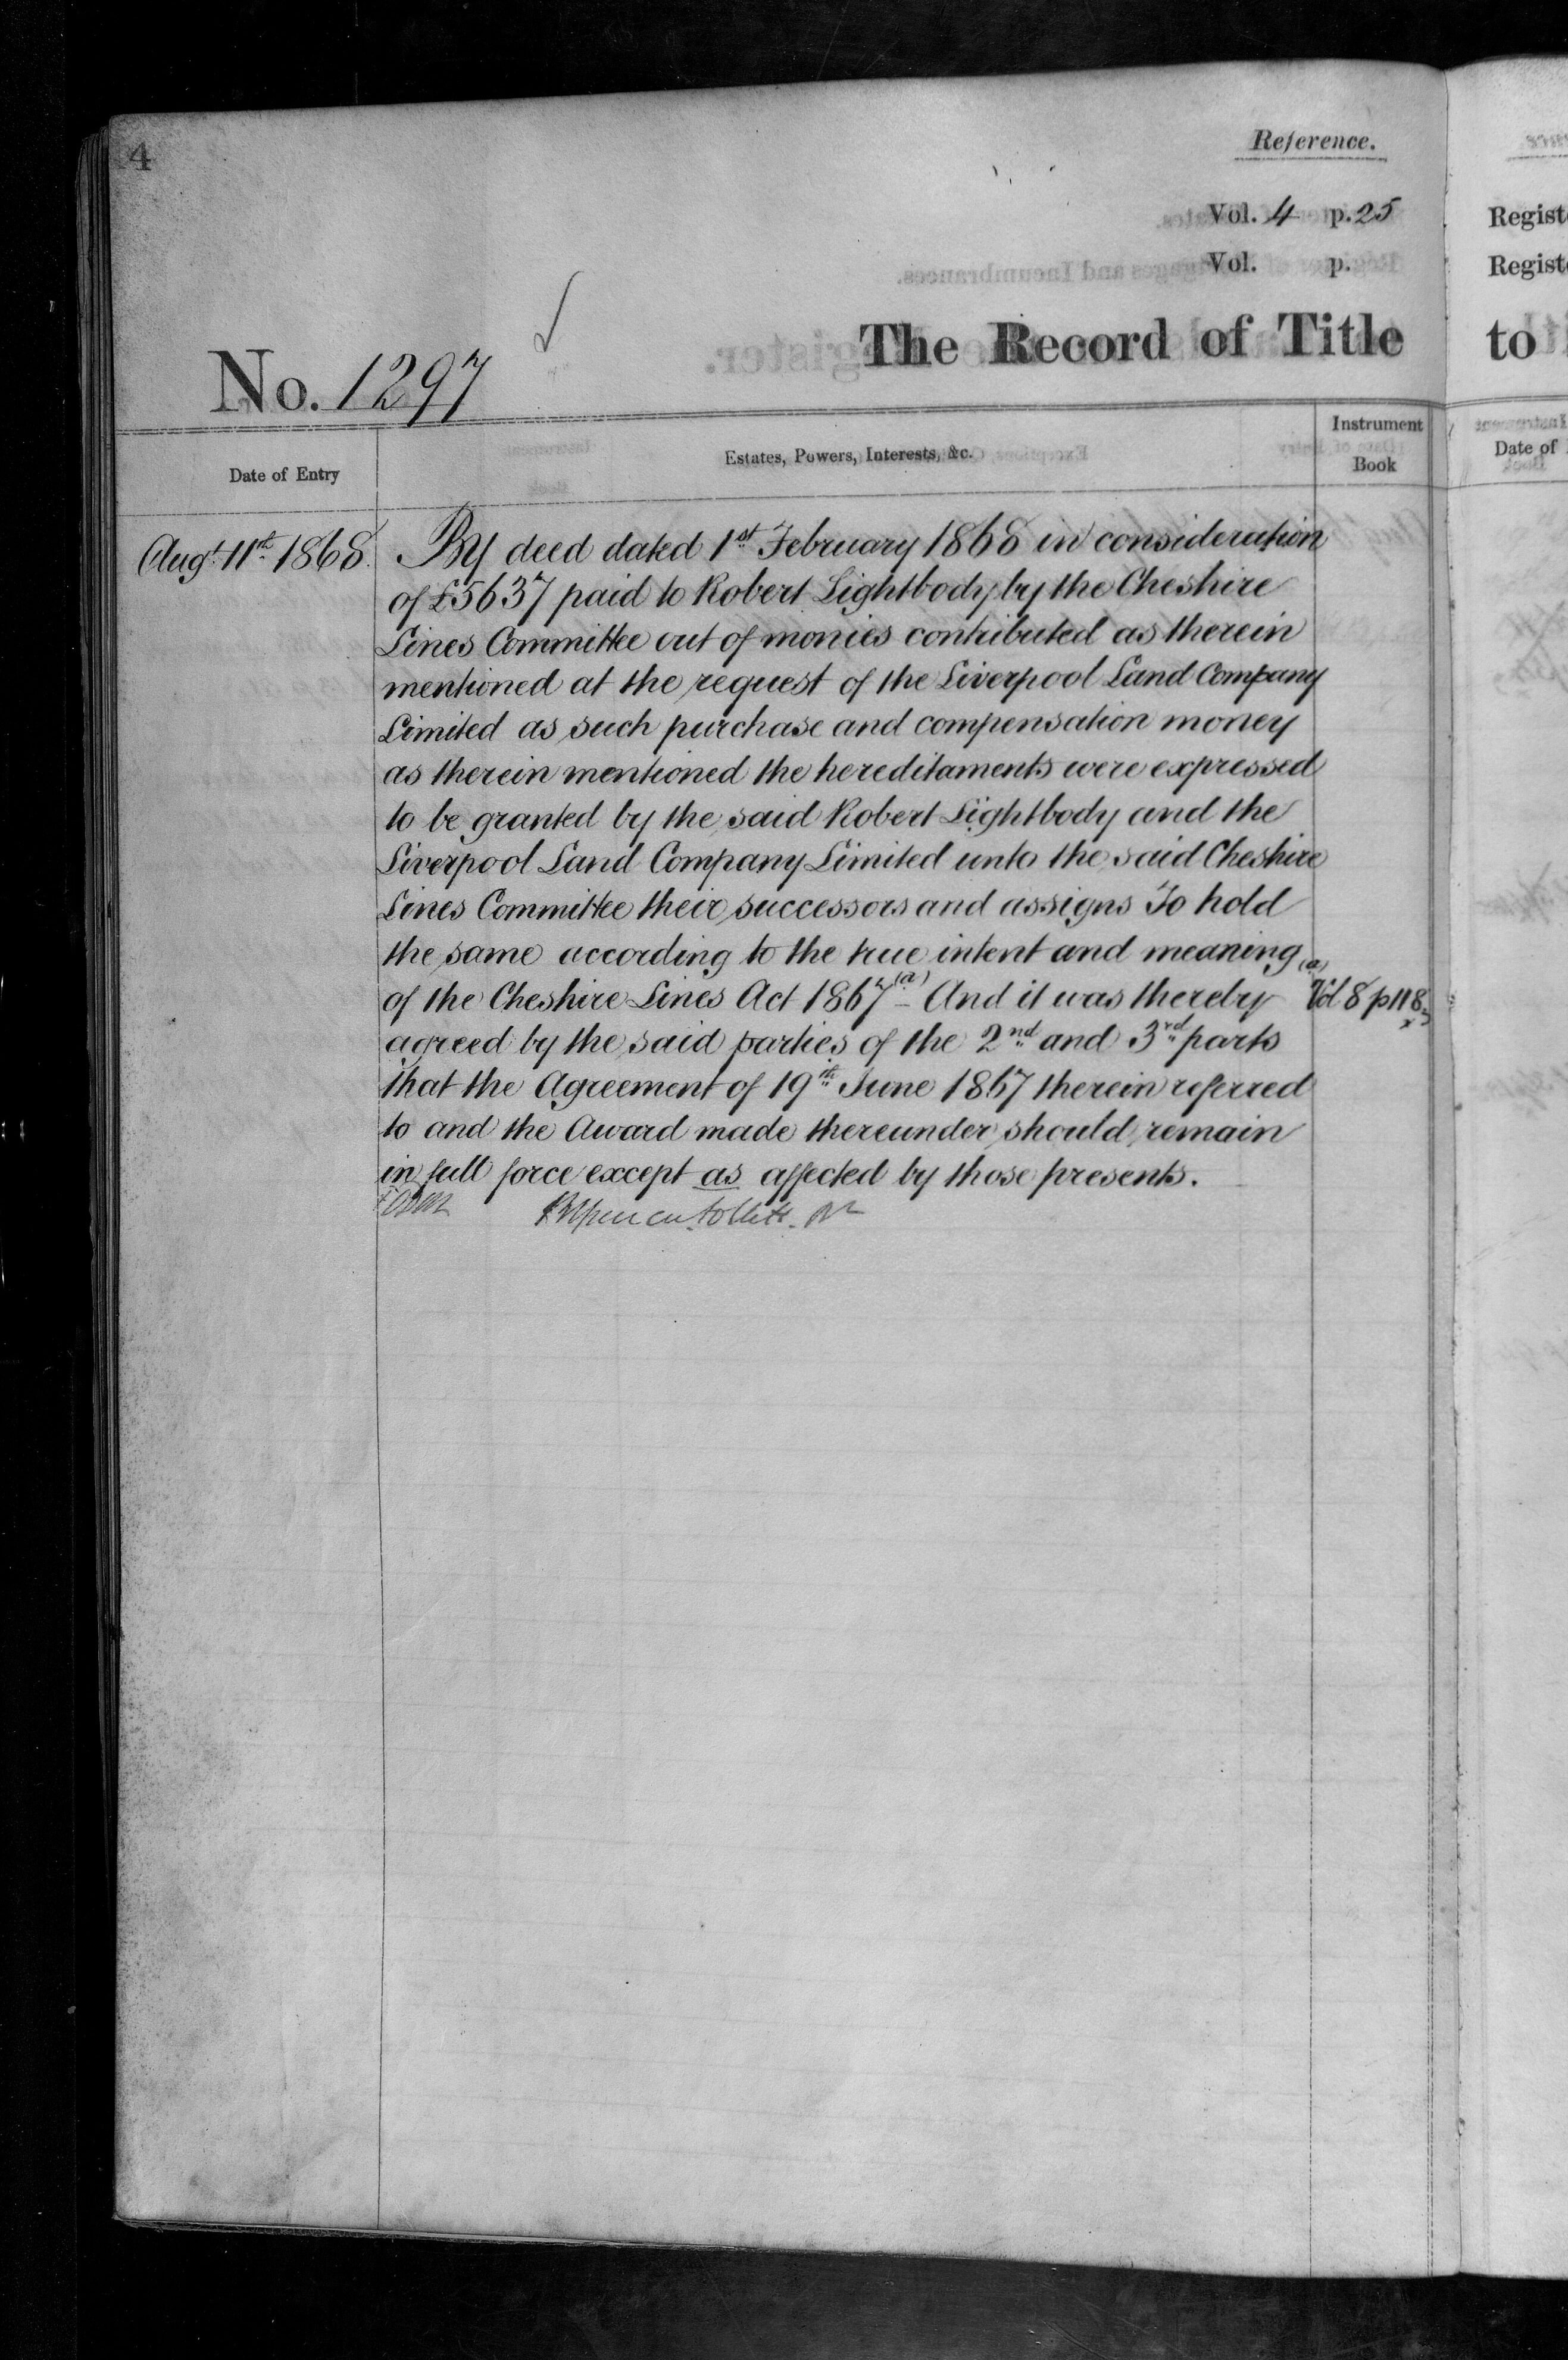 4
Reference.
Vol. 4 p. 25
Vol. p.
The Record of Title
No. 1297
Date of Entry
Estates, Powers, Interests, &c.
Instrument
Book
Augt. 11th 1868.
By deed dated 1st February 1868 in consideration
of £5637 paid to Robert Lightbody by the Cheshire
Lines Committee out of monies contributed as therein
mentioned at the request of the Liverpool Land Company
Limited as such purchase and compensation money
as therein mentioned the hereditaments were expressed
to be granted by the said Robert Lightbody and the
Liverpool Land Company Limited unto the said Cheshire
Lines Committee their successors and assigns To hold
the same according to the true intent and meaning
of the Cheshire Lines Act 1867 (a) And it was thereby
(a) Vol 8 p 118
agreed by the said parties of the 2nd and 3rd parts
that the Agreement of 19th June 1867 therein referred
to and the Award made thereunder should remain
in full force except as affected by those presents.
Regist
Regist
to
Date of